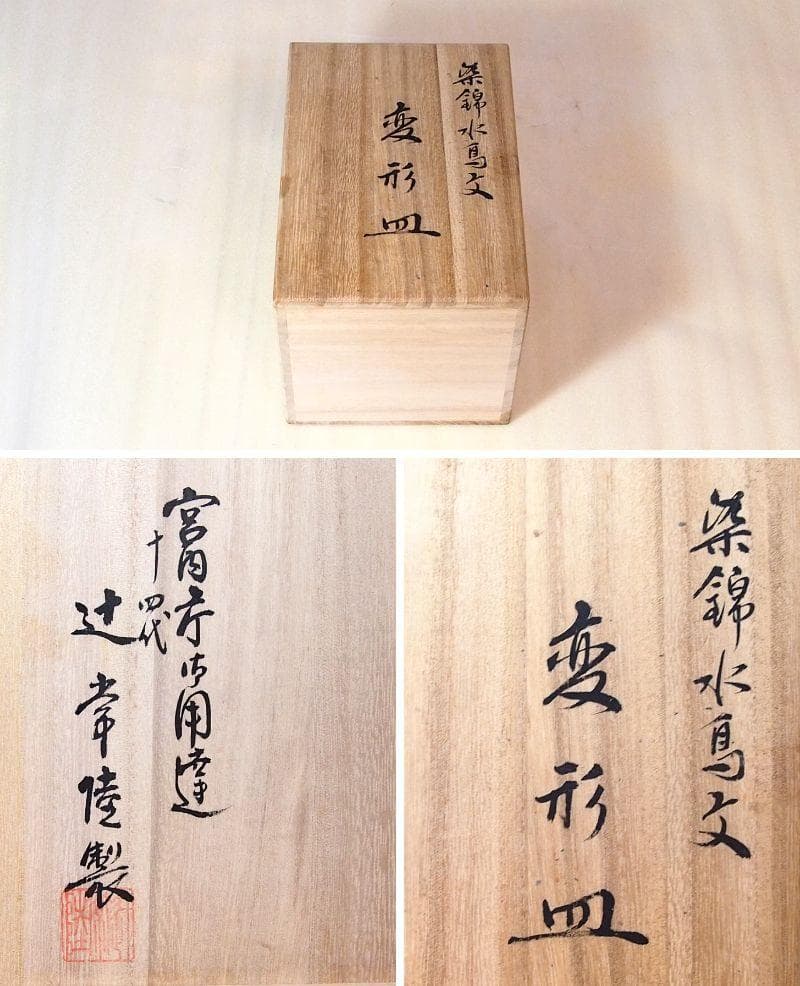 染錦水鳥文
変形皿
宮内庁御用達
十四代
辻常陸製
染錦水鳥文
変形皿